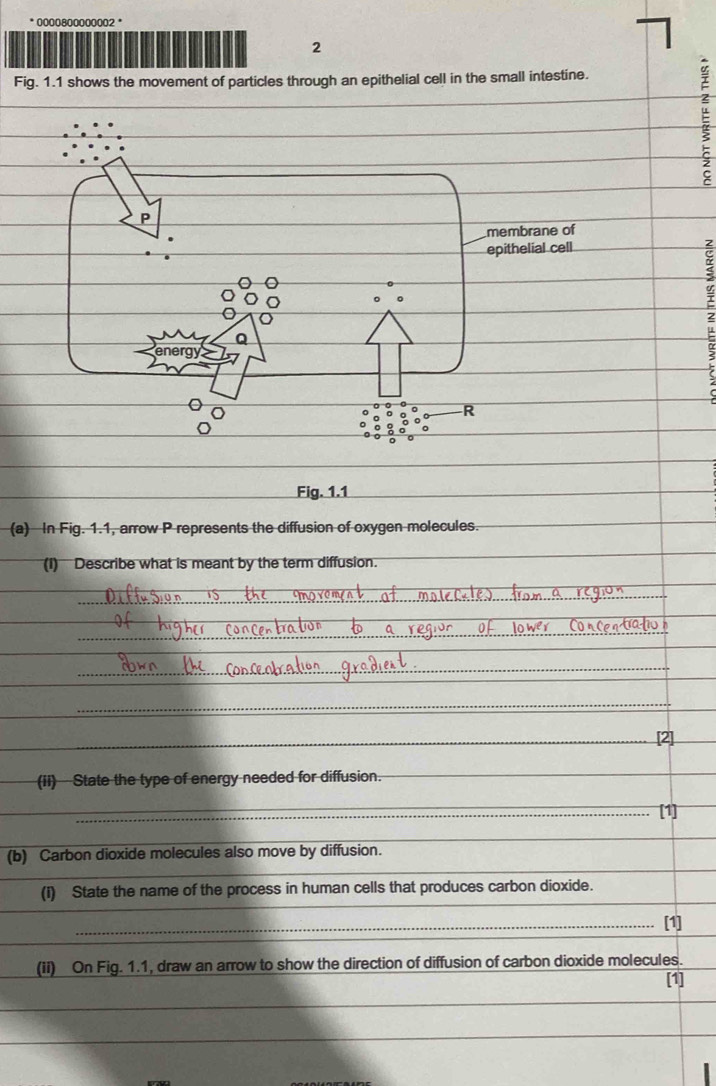 * 0000800000002 *
2
DO NOT WRITE IN THIS
Fig. 1.1 shows the movement of particles through an epithelial cell in the small intestine.
P
membrane of
epithelial cell
DO NOT WRITE IN THIS MARGIN
Q
energy
R
Fig. 1.1
(a) In Fig. 1.1, arrow P represents the diffusion of oxygen molecules.
(i) Describe what is meant by the term diffusion.
Diffusion is the movement of molecules from a region
of higher concentration to a region of lower concentration
down the concentration gradient.
[2]
(ii) State the type of energy needed for diffusion.
[1]
(b) Carbon dioxide molecules also move by diffusion.
(i) State the name of the process in human cells that produces carbon dioxide.
[1]
(ii) On Fig. 1.1, draw an arrow to show the direction of diffusion of carbon dioxide molecules.
[1]